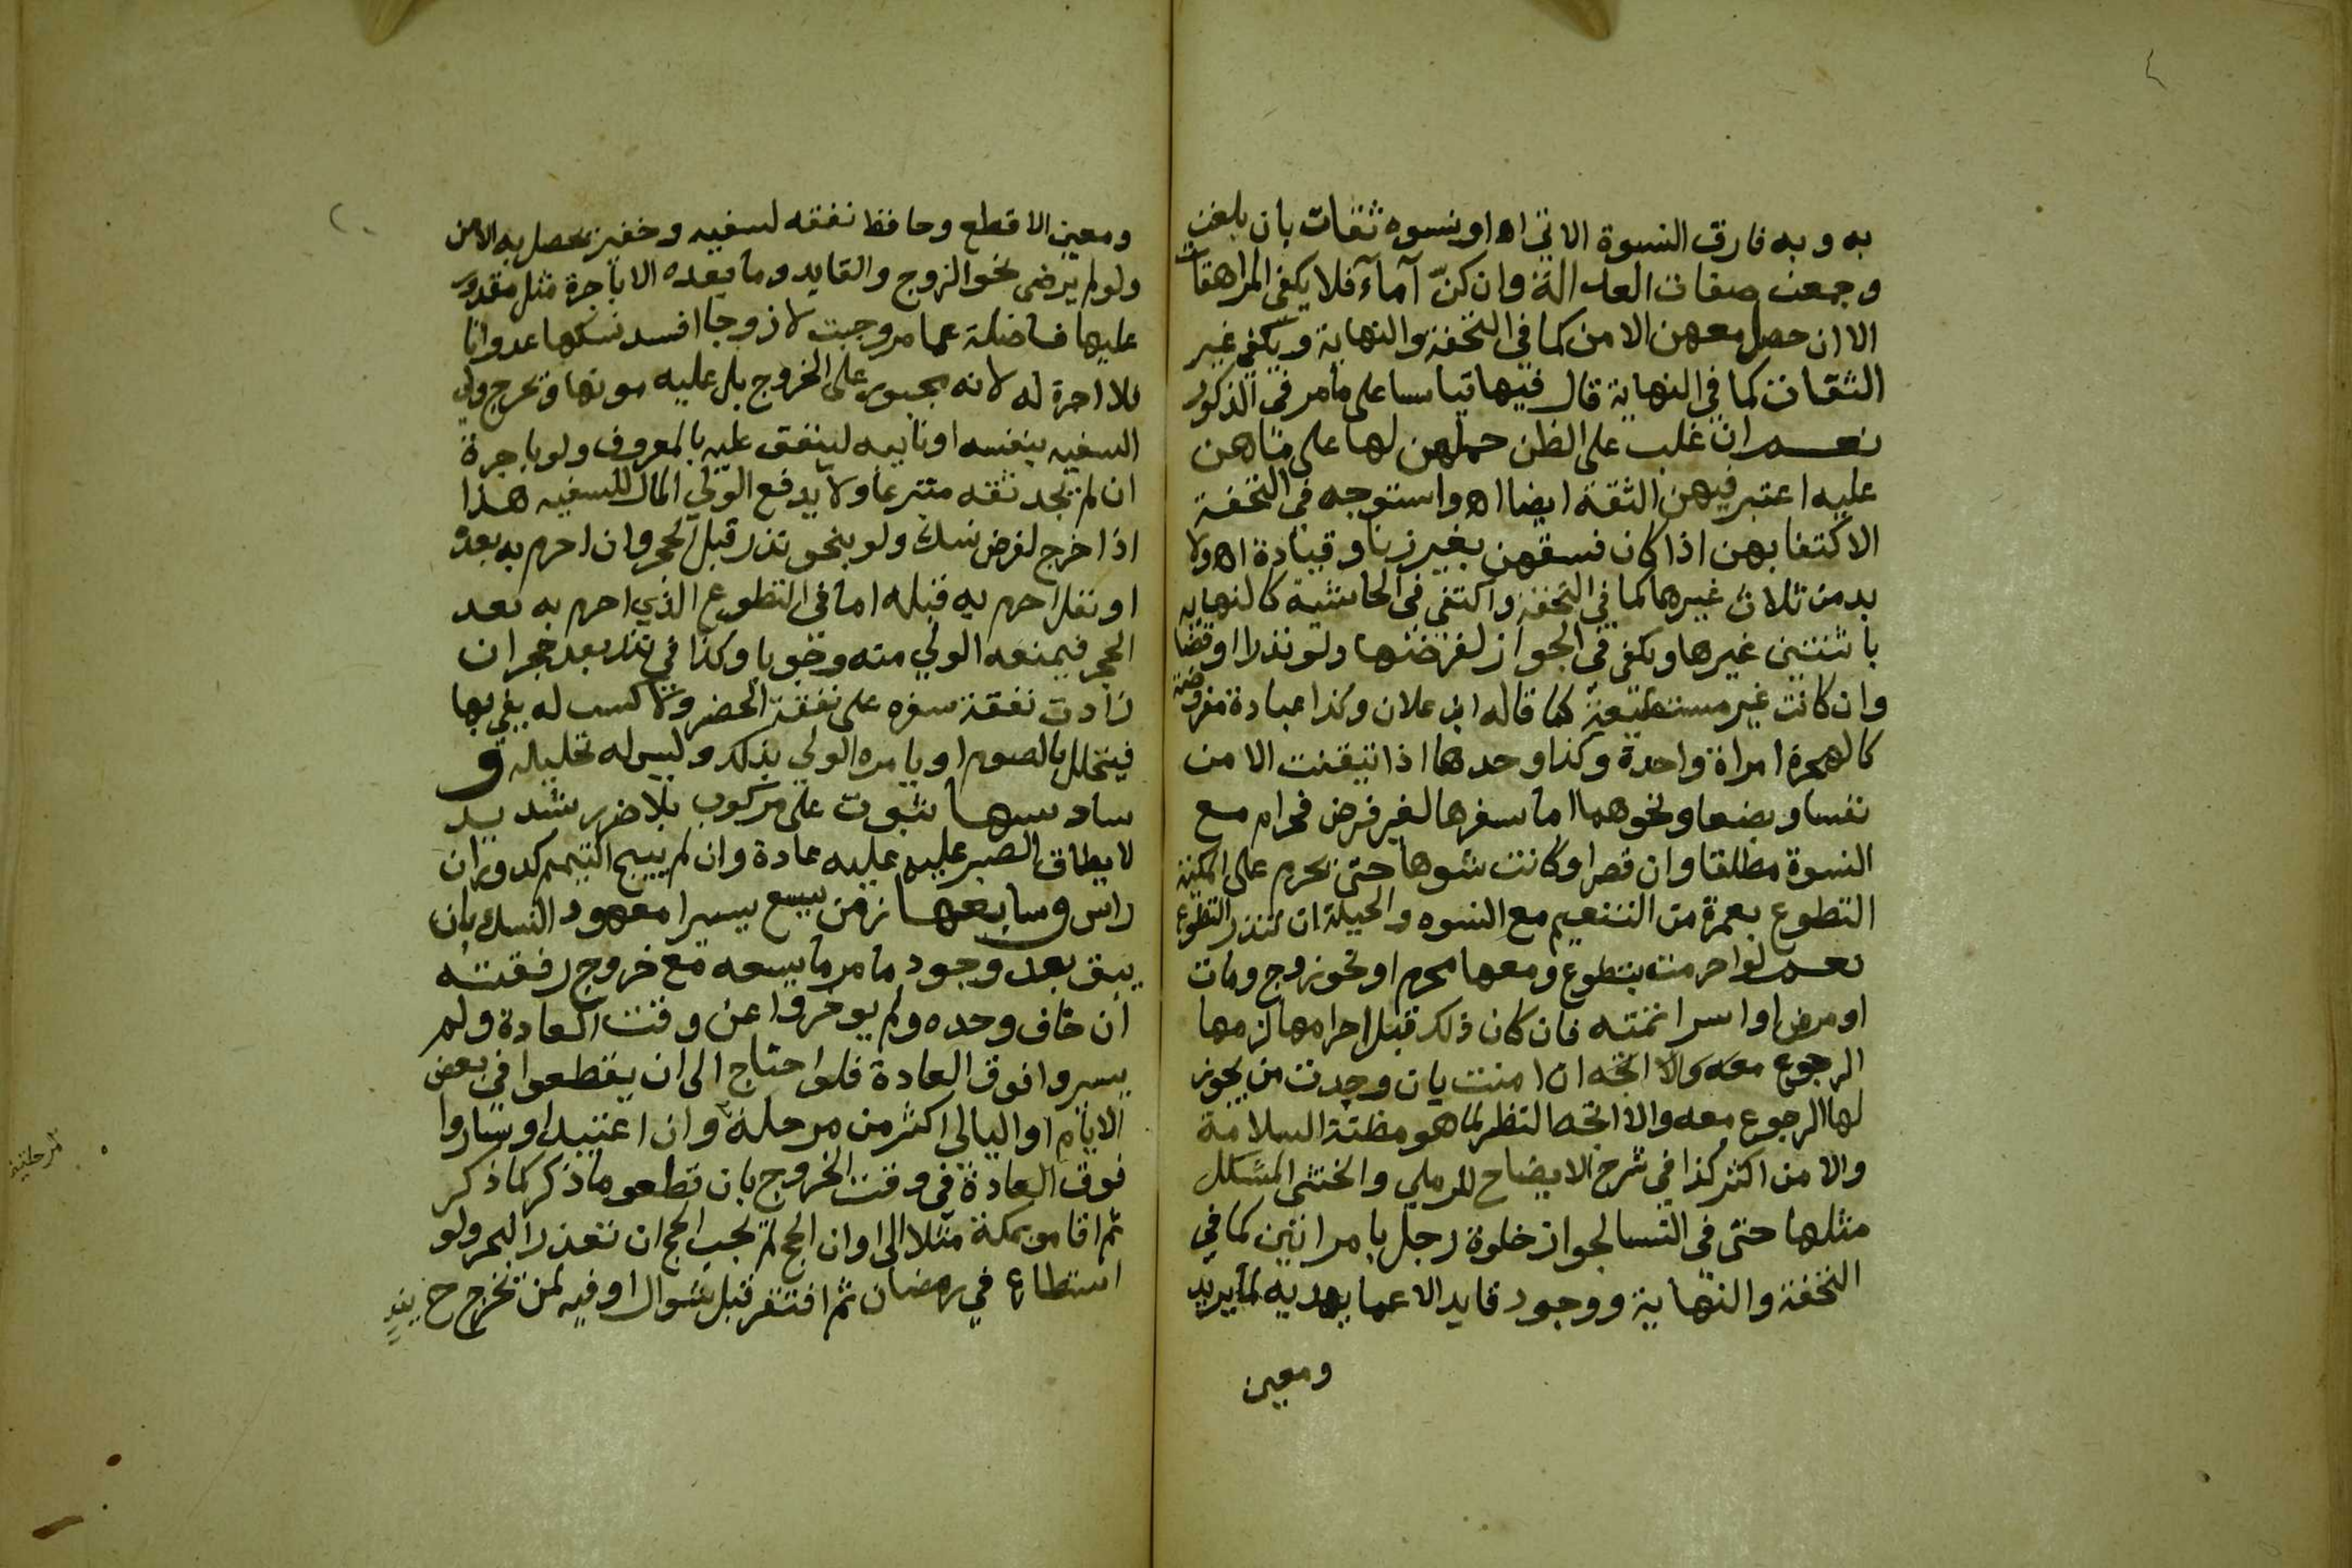 به وبه فارق النسوة الاتي اه او نسوه ثقات بان بلغن
وجمعن صفات العدالة وان كنّ آماء فلا يكفي المراهقات
الا ان حصل معهن الامن كما في التحفة والنهاية ويكفي غير
الثقات كما في النهاية قال فيها قياسا على ما مر في الذكور
نعم ان غلب على الظن حملهن لها على ما هن
عليه اعتبر فيهن الثقة ايضا اه واستوجه في التحفة
الاكتفا بهن اذا كان فسقهن بغير زنا وقيادة اه ولا
بد من ثلاث غيرها كما في التحفة واكتفى في الحاشية كالنهايه
باثنتين غيرها ويكفي في الجواز لفرضها ولو نذرا او قضا
وان كانت غير مستطيعة كما قاله ابن علان وكذا عبادة مفروضة
كالهجرة امراة واحدة وكذا وحدها اذا تيقنت الامن
نفسا وبضعا ونحوهما اما سفرها لغير فرض فحرام مع
النسوة مطلقا وان قصر او كانت شوها حتى يحرم على المكية
التطوع بعمرة من التنعيم مع النسوه والحيلة ان تنذر التطوع
نعم لو احرمت بتطوع ومعها محرم او نحو زوج ومات
او مرض او اسرا نمته فان كان ذلك قبل احرامها لزمها
الرجوع معه والا اتجه ان امنت بان وجدت من يجوز
لها الرجوع معه والا اتجه النظر لما هو مظنة السلامة
والامن اكثر كذا في شرح الايضاح للرملي والخنثى المشكل
مثلها حتى في النسا لجواز خلوة رجل بامراتين كما في
التحفة والنهاية ووجود قايد الاعما يهديه لما يريد
ومعين
ومعين الاقطع وحافظ نفقه لسفيه وخفير يحصل به الامن
ولو لم يرض نحو الزوج والقايد وما بعده الا باجرة مثل مقدور
عليها فاضلة عما مر وجبت لا زوجا افسد نسكها عدوانا
فلا اجرة له لانه مجبور على الخروج بل عليه مونها ويخرج ولي
السفيه بنفسه او نايبه لينفق عليه بالمعروف ولو باجرة
ان لم يجد ثقه متبرعا ولا يدفع الولي المال للسفيه هذا
اذا خرج لفرض نسك ولو بنحو نذر قبل الحجر وان احرم به بعده
او نفل احرم به قبله اما في التطوع الذي احرم به بعد
الحجر فيمنعه الولي منه وجوبا وكذا في نذر بعد حجر ان
زادت نفقة سفره على نفقة الحضر ولا كسب له يفي بها
فيتحلل بالصوم او يامره الولي بذلك وليس له تحليله و
سادسها ثبوت على مركوب بلا ضرر شديد
لا يطاق الصبر عليه عليه عادة وان لم يبيح التيمم كدوران
راس وسابعها زمن يسع يسيرا معهود النسك بان
يبقى بعد وجود ما مر ما يسعه مع خروج رفقته
ان خاف وحده ولم يوخروا عن وقت العادة ولم
يسيروا فوق العادة فلو احتاج الى ان يقطعوا في بعض
الايام او اليالي اكثر من مرحلة وان اعتيد او ساروا
فوق العادة في وقت الخروج بان قطعو ما ذكر كما ذكر
ثم اقامو بمكة مثلا الى اوان الحج لم يجب الحج ان تعذر البحر ولو
استطاع في رمضان ثم افتقر قبل شوال او فيه لمن يخرج ح